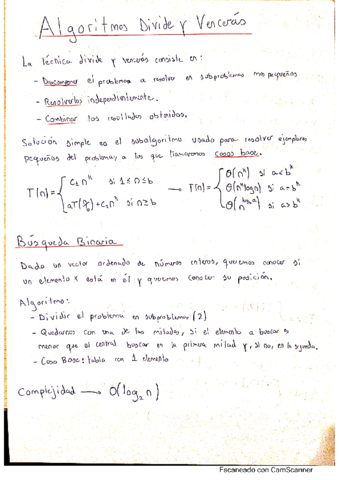 Algoritmos Divide y Vencerás
La técnica divide y vencerás consiste en:
- Descomponer el problema a resolver en subproblemas más pequeños
- Resolverlos independientemente.
- Combinar los resultados obtenidos.
Solución simple es el subalgoritmo usado para resolver ejemplares
pequeños del problema, a los que llamaremos casos base.
T(n) = { c₁nᵏ si 1 ≤ n ≤ b → T(n) = { Θ(nᵏ) si a < bᵏ
aT(n/b) + c₂nᵏ si n ≥ b Θ(nᵏ log n) si a = bᵏ
Θ(n^(log_b a)) si a > bᵏ
Búsqueda Binaria
Dado un vector ordenado de números enteros, queremos conocer si
un elemento x está en él y queremos conocer su posición.
Algoritmo:
- Dividir el problema en subproblemas (2)
- Quedarnos con una de las mitades, si el elemento a buscar es
menor que el central buscar en la primera mitad y, si no, en la segunda.
- Caso Base: tabla con 1 elemento
Complejidad → O(log₂ n)
Escaneado con CamScanner